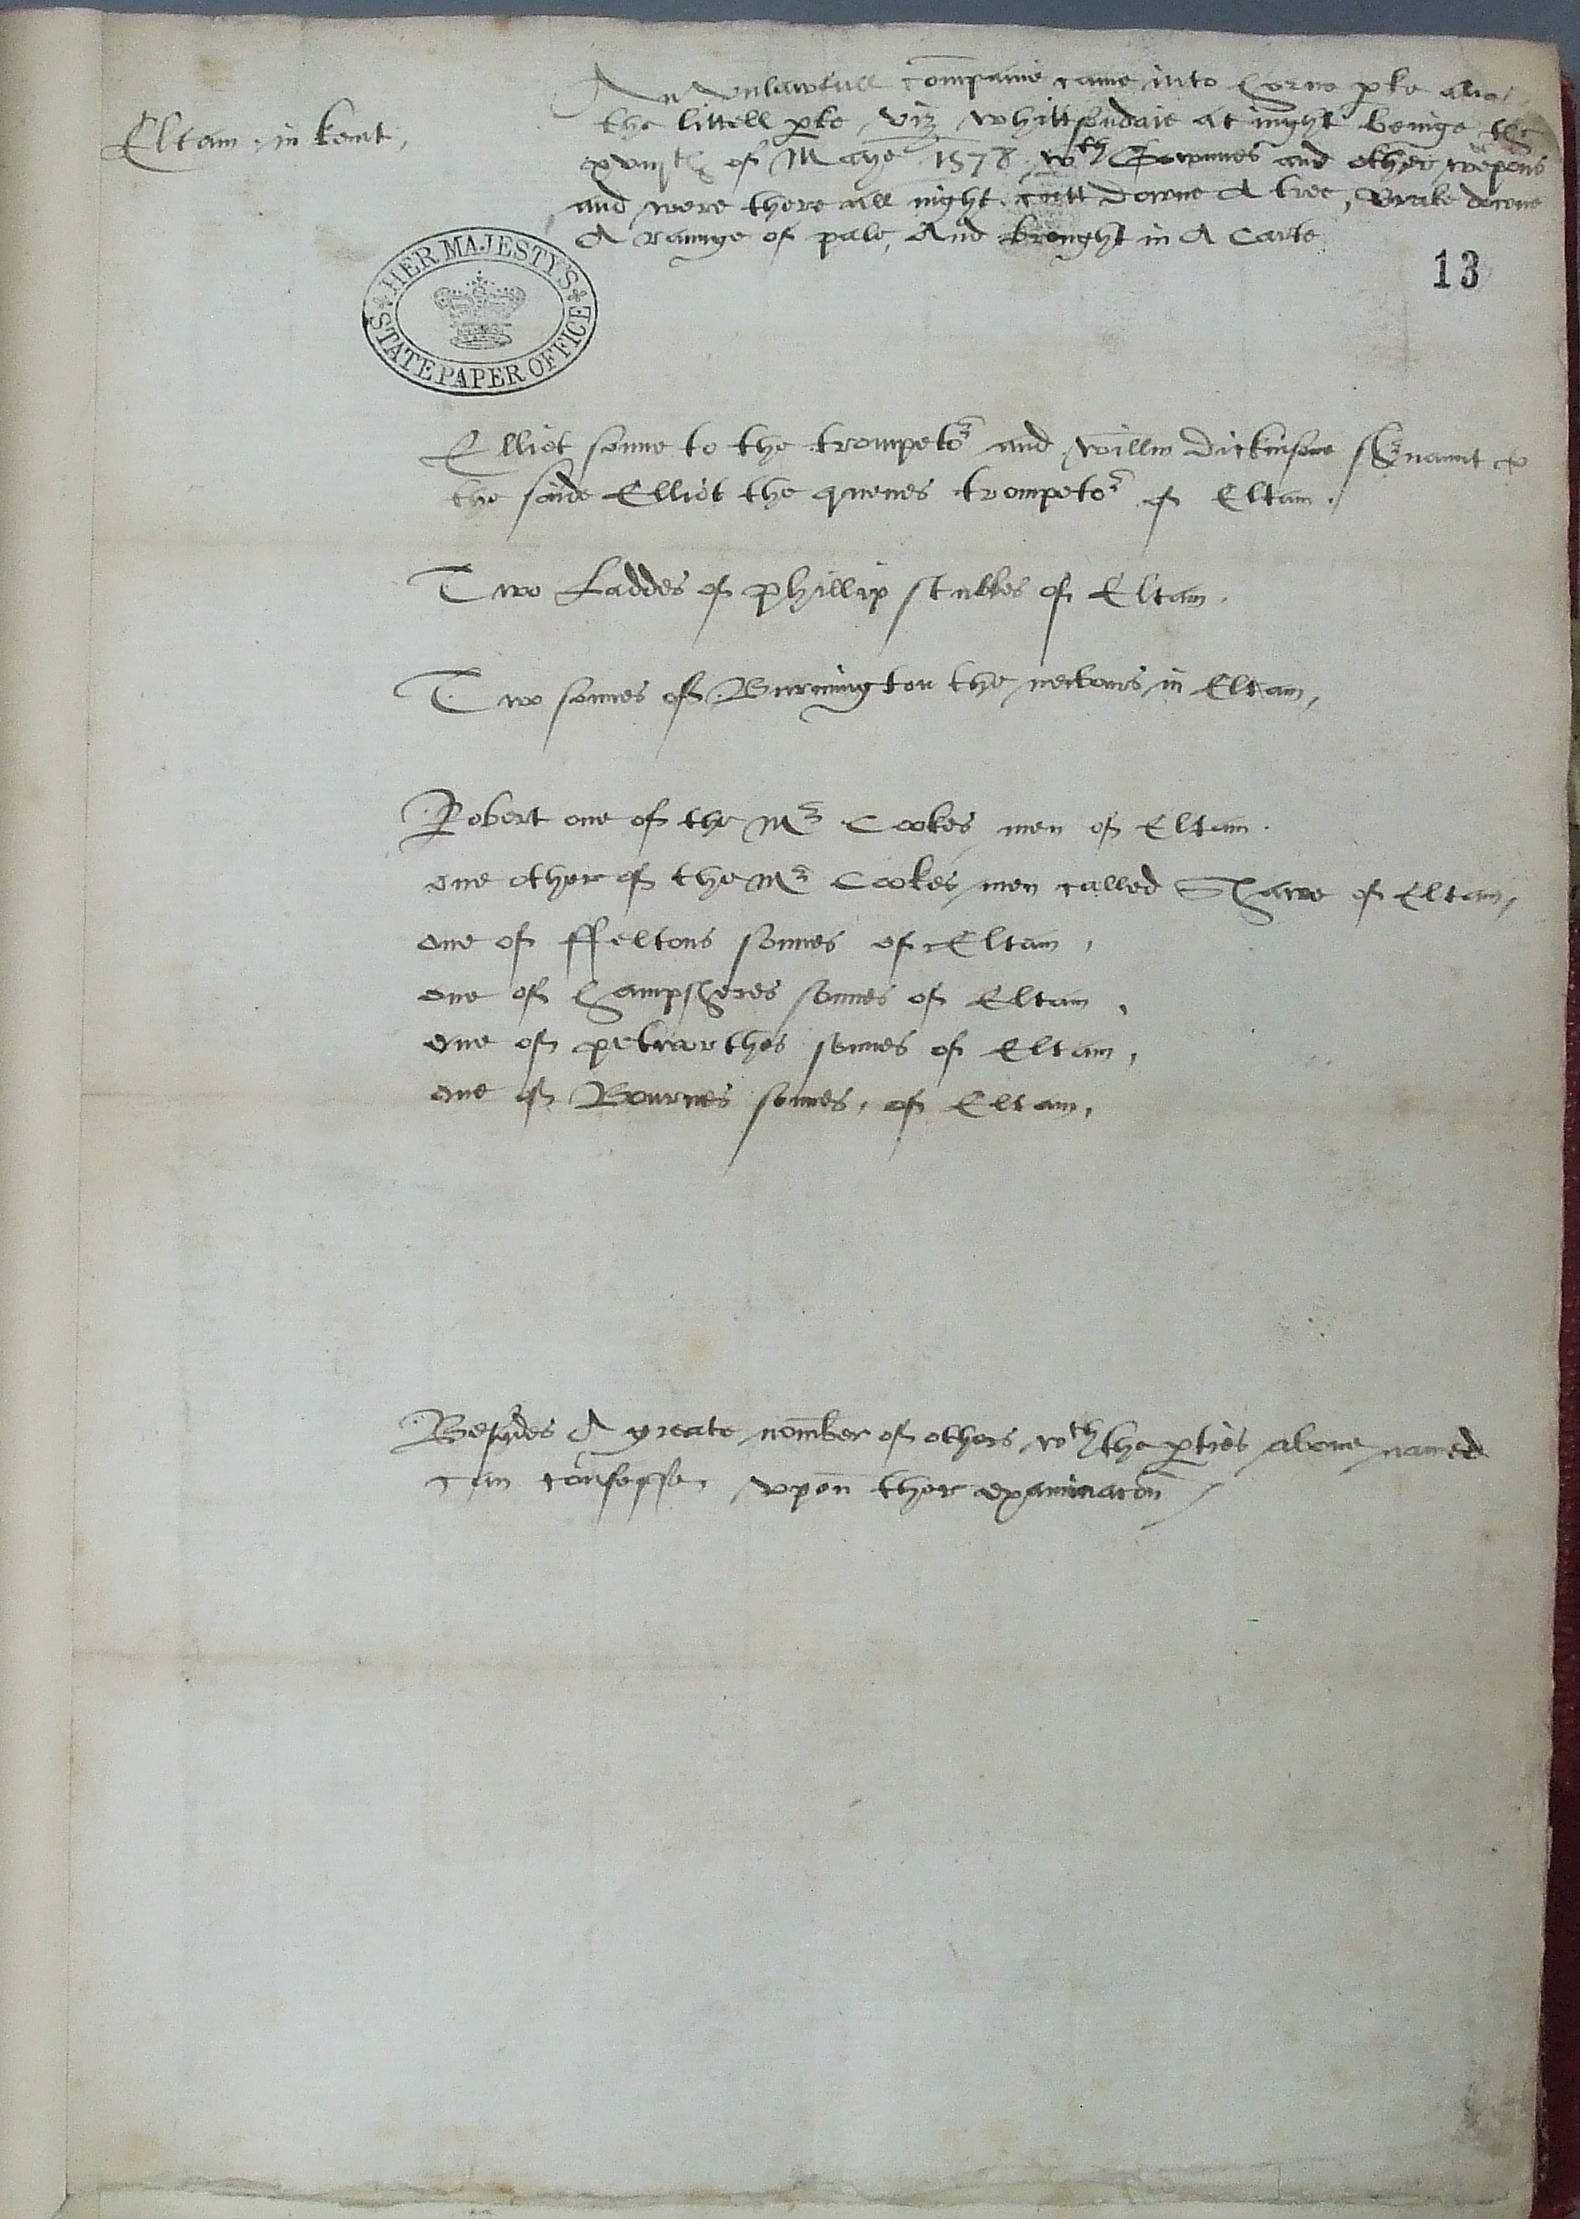 Eltam in kent,
An vnlawfull companie came into horne pke alias
the littell pke, viz whittsondaie at night beinge the
xviijth of Maye 1578 wth Gownnes and other wepons
and were there all night cutt downe A tree, brake downe
A raunge of pale, And brought in A Carte
13
HER MAJESTY'S
STATE PAPER OFFICE
Elliot sonne to the trompetor and willm Dickinsone sruaunt to
the saide Elliot the quenes trompetor of Eltam.
Two Laddes of phillip stubbes of Eltam.
Two sonnes of Burnington the in Eltam,
Robert one of the Mr Cookes men of Eltam.
one other of the Mr Cookes men called Shawe of Eltam,
one of ffeltons sonnes of Eltam,
one of hampsheres sonnes of Eltam,
one of petwarthes sonnes of Eltam,
one of Bournes sonnes, of Eltam,
Besydes A greate nomber of others wth the pties aboue named
can confesse vpon ther examinacon